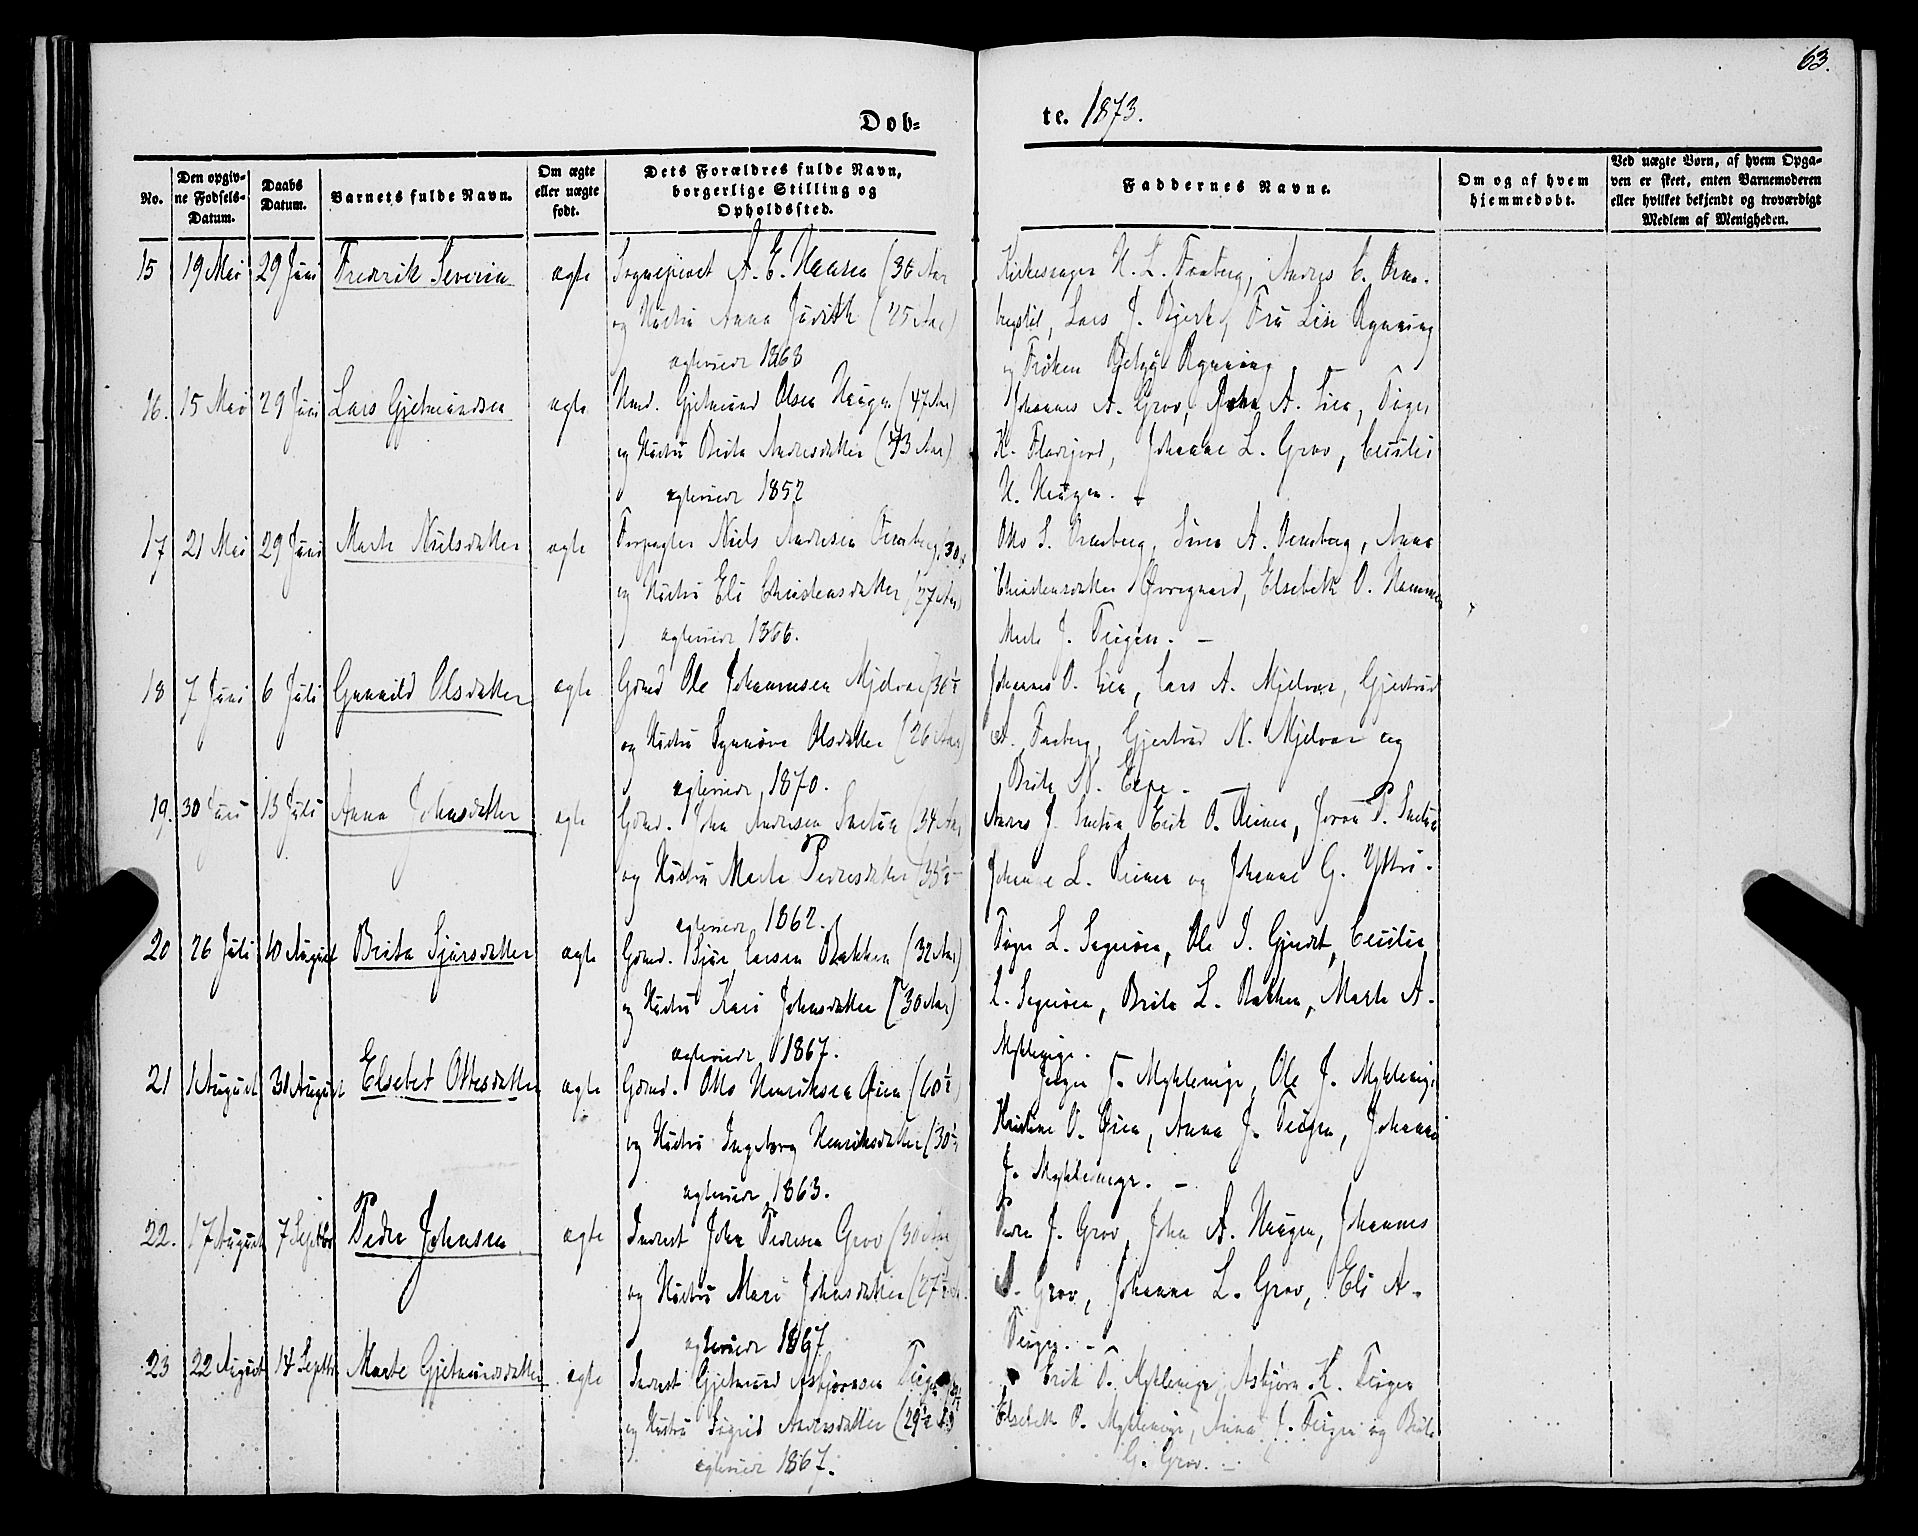 63.
Dob-
te. 1873.
No.
Den opgiv-
ne Fødsels-
Datum.
Daabs
Datum.
Barnets fulde Navn.
Om ægte
eller uægte
født.
Dets Forældres fulde Navn,
borgerlige Stilling og
Opholdssted.
Faddernes Navne.
Om og af hvem
hjemmedøbt.
Ved uægte Børn, af hvem Opga-
ven er skeet, enten Barnemoderen
eller hvilket bekjendt og troværdigt
Medlem af Menigheden.
15 19 Mai 29 Juni Fredrik Severin ægte Sognepræst A. E. Hansen (36 Aar
og Hustru Anna Judith (25 Aar)
ægteviede 1868
Kirkesanger H. L. Faaberg, Andres
Lars J. Bjerk, Fru Lise Rynning
og Frøken Rynning
16. 15 Mai 29 Juni Lars Gjetmundsen ægte Gjetmund Olsen Haugen (47 Aar)
og Hustru Brita Andersdatter (43 Aar)
ægteviede 1852
Johannes A. Grov, John A. Lien,
K. Johanne L. Grov,
H. Haugen. -
17 21 Mai 29 Juni Marte Nielsdatter ægte Forpagter Niels Andersen
og Hustru Eli Christensdatter (27 Aar)
ægteviede 1866.
Otto S. A. Anna
Christensdatter Øvregaard, Elsebeth O. Hammer
J. Teigen. -
18 7 Juni 6 Juli Gunnild Olsdatter ægte Gbmd Ole Johannesen Mjelvær
og Hustru Synnøve Olsdatter (26 Aar)
ægteviede 1870.
Johannes O. Lien, Lars A. Mjelvær, Gjertrud
A. Faaberg, Gjertrud N. Mjelvær og
Brite N.
19. 30 Juni 13 Juli Anna Johnsdatter ægte Gbmd. John Andersen (34 Aar
og Hustru Marte Pedersdatter
ægteviede 1862.
Andres J. Erik O.
Johanne L. og Johanne G. Ystri.
20 26 Juli 10 August Brita Sjursdatter ægte Gbmd. Sjur Larsen Bakken (32 Aar)
og Hustru Kari Johnsdatter (30 Aar)
ægteviede 1867.
L. Ole I. Gjerdet, Cecilie
L. Brite L. Bakken, Marte A.
Myklemyr.
21 1 August 31 August Elsebet Ottesdatter ægte Gbmd. Otto Henriksen Øien
og Hustru Ingeborg Henriksdatter
ægteviede 1863.
Jørgen T. Myklemyr, Ole J. Myklemyr
Kristine O. Øien, Anna J. Teigen, Johanne
J. Myklemyr. -
22. 17 August 7 Septbr Peder Johnsen ægte Inderst John Pedersen Grov (30 Aar)
og Hustru Mari Johnsdatter
ægteviede 1867
Peder J. Grov, John A. Haugen, Johannes
A. Grov, Johanne L. Grov, Eli A.
Teigen. -
23 22 August 14 Septbr Marte Gjetmundsdatter ægte Inderst Gjetmund Asbjørnsen Teigen
og Hustru Sigrid Andersdatter
ægteviede 1867.
Erik T. Myklemyr, Asbjørn K. Teigen
Elsebeth P. Myklemyr, Anna J. Teigen og Brite
G. Grov. -